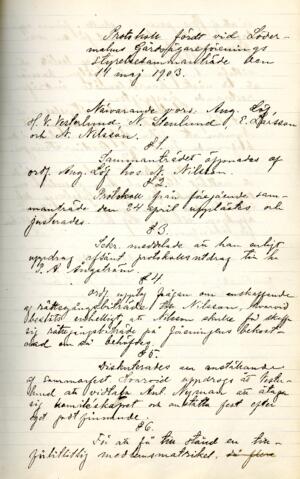 Protokoll fördt vid Söder-
malms Gårdsägareförenings
styrelsesammanträde den
14 maj 1903.
Närvarande voro, Aug. Löf
H. V. Vesterlund, N. Stenlund, E. Larsson
och N. Nilsson.
§ 1.
Sammanträdet öppnades af
ordf. Aug. Löf hos N. Nilsson.
§ 2.
Protokoll från föregående sam-
manträde den 24 April upplästes och
justerades.
§ 3.
Sekr. meddelade att han enligt
uppdrag afsänt protokollsutdrag till hr
P. A. Ångström.
§ 4.
ordf. upptog frågan om anskaffande
af rättegångsbiträde åt Nilsson, hvarvid
beslöts enhälligt att Nilsson skulle få skaffa
sig rättegångsbiträde på föreningens bekost-
nad om så behöfdes.
§ 5.
Diskuterades om anställande
af sommarfest, hvarvid uppdrogs åt Vester-
lund att vidtala Aut. Nyman att åtaga
sig och anställa fest efter
godt finnande.
§ 6.
För att få till stånd en till-
förlitlig medlemsmatrikel.